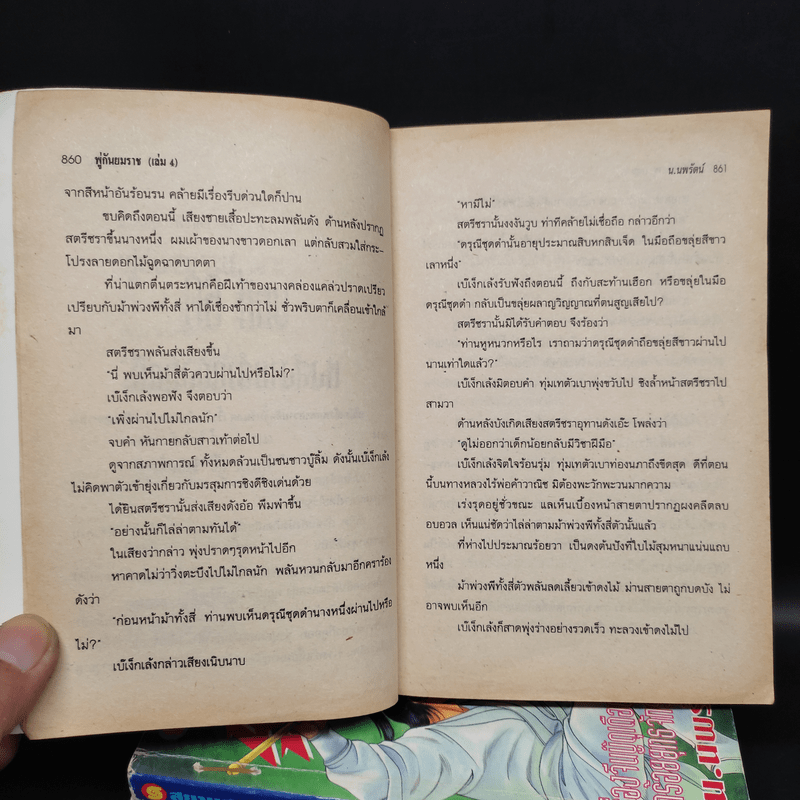 860 พู่กันยมราช (เล่ม 4)
จากสีหน้าอันร้อนรน คล้ายมีเรื่องรีบด่วนใดก็ปาน
ขบคิดถึงตอนนี้ เสียงชายเสื้อปะทะลมพลันดัง ด้านหลังปรากฏ
สตรีชราขึ้นนางหนึ่ง ผมเผ้าของนางขาวดอกเลา แต่กลับสวมใส่กระ-
โปรงลายดอกไม้ฉูดฉาดบาดตา
ที่น่าแตกตื่นตระหนกคือฝีเท้าของนางคล่องแคล่วปราดเปรียว
เปรียบกับม้าพ่วงพีทั้งสี่ หาได้เชื่องช้ากว่าไม่ ชั่วพริบตาก็เคลื่อนเข้าใกล้
มา
สตรีชราพลันส่งเสียงขึ้น
"นี่ พบเห็นม้าสี่ตัวควบผ่านไปหรือไม่?"
เบ๊เง็กเล้งพอฟัง จึงตอบว่า
"เพิ่งผ่านไปไม่ไกลนัก"
จบคำ หันกายกลับสาวเท้าต่อไป
ดูจากสภาพการณ์ ทั้งหมดล้วนเป็นชนชาวบู๊ลิ้ม ดังนั้นเบ๊เง็กเล้ง
ไม่คิดพาตัวเข้ายุ่งเกี่ยวกับมรสุมการชิงดีชิงเด่นด้วย
ได้ยินสตรีชรานั้นส่งเสียงดังอ้อ พึมพำขึ้น
"อย่างนั้นก็ไล่ล่าตามทันได้"
ในเสียงว่ากล่าว พุ่งปราดๆรุดหน้าไปอีก
หาคาดไม่ว่าวิ่งตะบึงไปไม่ไกลนัก พลันหวนกลับมาอีกคราร้อง
ดังว่า
"ก่อนหน้าม้าทั้งสี่ ท่านพบเห็นดรุณีชุดดำนางหนึ่งผ่านไปหรือ
ไม่?"
เบ๊เง็กเล้งกล่าวเสียงเนิบนาบ
น.นพรัตน์ 861
"หามีไม่"
สตรีชรานั้นงงงันวูบ ท่าทีคล้ายไม่เชื่อถือ กล่าวอีกว่า
"ดรุณีชุดดำนั้นอายุประมาณสิบหกสิบเจ็ด ในมือถือขลุ่ยสีขาว
เลาหนึ่ง"
เบ๊เง็กเล้งรับฟังถึงตอนนี้ ถึงกับสะท้านเฮือก หรือขลุ่ยในมือ
ดรุณีชุดดำ กลับเป็นขลุ่ยผลาญวิญญาณที่ตนสูญเสียไป?
สตรีชรานั้นมิได้รับคำตอบ จึงร้องว่า
"ท่านหูหนวกหรือไร เราถามว่าดรุณีชุดดำถือขลุ่ยสีขาวผ่านไป
นานเท่าใดแล้ว?"
เบ๊เง็กเล้งมิตอบคำ ทุ่มเทตัวเบาพุ่งขวับไป ชิงล้ำหน้าสตรีชราไป
สามวา
ด้านหลังบังเกิดเสียงสตรีชราอุทานดังเอ๊ะ โพล่งว่า
"ดูไม่ออกว่าเด็กน้อยกลับมีวิชาฝีมือ"
เบ๊เง็กเล้งจิตใจร้อนรุ่ม ทุ่มเทตัวเบาท่องนภาถึงขีดสุด ดีที่ตอน
นี้บนทางหลวงไร้พ่อค้าวาณิช มิต้องพะวักพะวนมากความ
เร่งรุดอยู่ชั่วขณะ แลเห็นเบื้องหน้าสายตาปรากฏผงคลีตลบ
อบอวล เห็นแน่ชัดว่าไล่ล่าตามม้าพ่วงพีทั้งสี่ตัวนั้นแล้ว
ที่ห่างไปประมาณร้อยวา เป็นดงต้นปังที่ใบไม้สุมหนาแน่นแถบ
หนึ่ง
ม้าพ่วงพีทั้งสี่ตัวพลันลดเลี้ยวเข้าดงไม้ ม่านสายตาถูกบดบัง ไม่
อาจพบเห็นอีก
เบ๊เง็กเล้งก็สาดพุ่งร่างอย่างรวดเร็ว ทะลวงเข้าดงไม้ไป